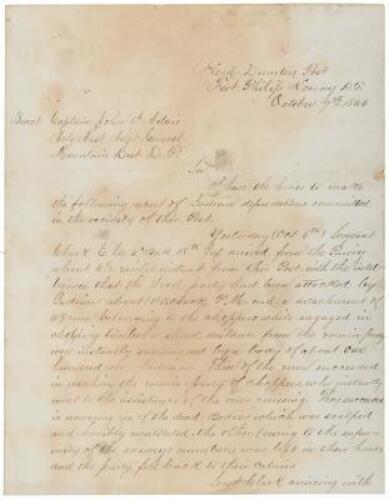 Head Quarters Post
Fort Philip Kearney D.T.
October 7th 1866
Captain John Adair
General
Mountain Dist D.P.
Sir
I have the honor to make
the following report of Indian depredations committed
in the vicinity of this Post.
Yesterday (Oct 6th) Sergeant
Clark Co E 2d Batt 18th Inf arrived from the Pinery
about 6½ miles distant from this Post, with the intel-
ligence that the wood party had been attacked by
Indians about O'clock P.M. and a detachment of
men belonging to the choppers while engaged in
chopping timber a short distance from the main party
were instantly surrounded by a body of about one
hundred Indians of the men succeeded
in reaching the main party of choppers, who instantly
went to the assistance of the ones missing. They succeeded
in of the dead bodies which was scalped
and horribly mutilated the other (owing to the superi-
ority of the enemys numbers) was left in their hands
and the party fell back to their cabins
Sergt Clark arriving with